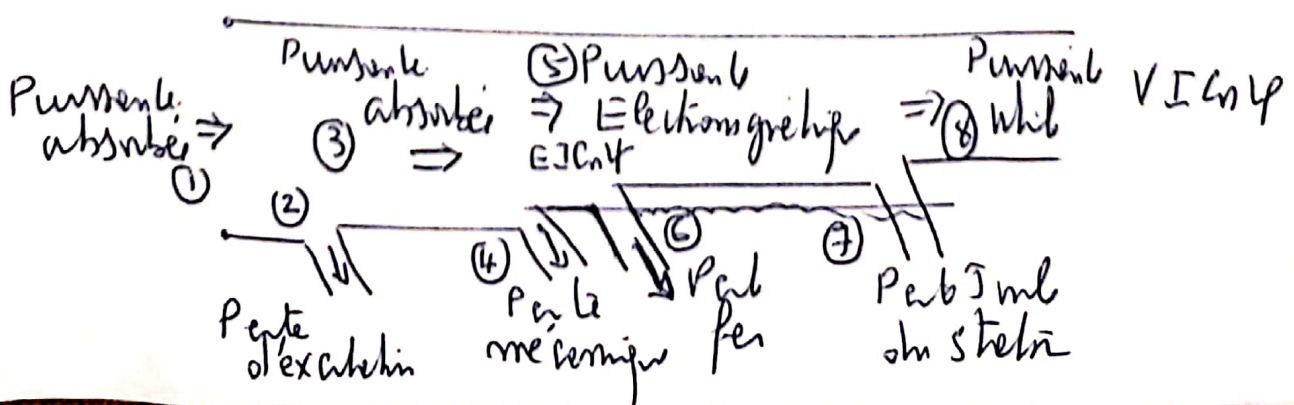 Puissante absorbée ⇒
①
Puissante absorbée
③ ⇒
⑤ Puissante
⇒ Electromagnétique
EICosψ
Puissante
⇒ ⑧ Utile
VICosφ
②
Perte d'excitation
④
Perte mécanique
⑥
Perte fer
⑦
Perte Joule du stator